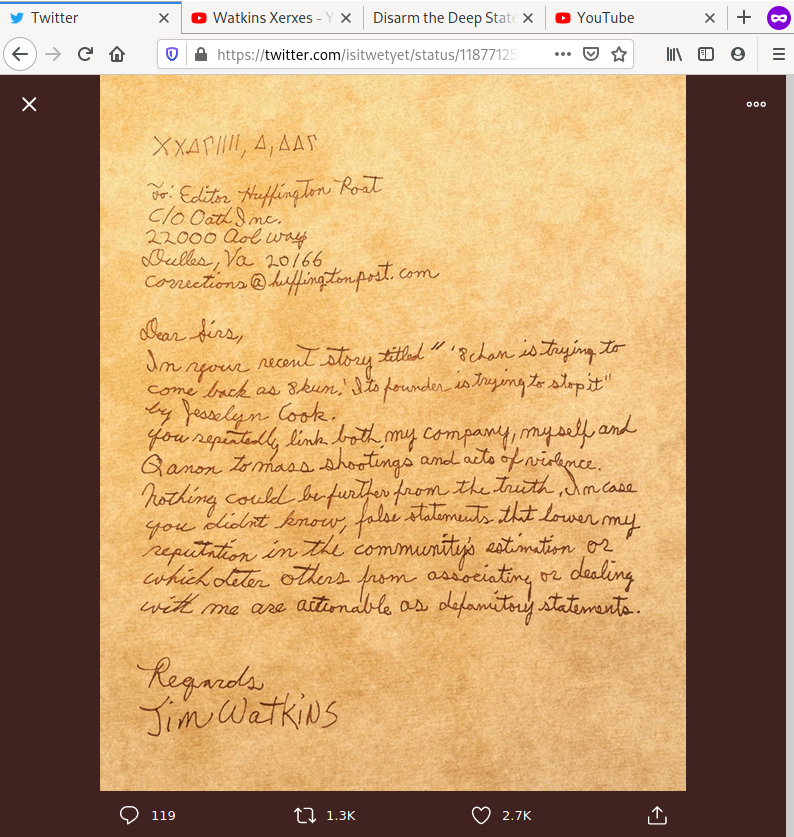 Twitter
Watkins Xerxes - Y
Disarm the Deep State
YouTube
https://twitter.com/isitwetyet/status/11877125
ΧΧΔΓΙΙΙΙ, Δ, ΔΔΓ
To: Editor Huffington Post
C/O Oath Inc.
22000 Aol way
Dulles, Va 20166
corrections@huffingtonpost.com
Dear Sirs,
In your recent story titled "'8chan is trying to
come back as 8kun.' Its founder is trying to stop it"
by Jesselyn Cook.
you repeatedly link both my company, myself and
Qanon to mass shootings and acts of violence.
Nothing could be further from the truth. In case
you didnt know, false statements that lower my
reputation in the community's estimation or
which deter others from associating or dealing
with me are actionable as defamitory statements.
Regards
Jim Watkins
119
1.3K
2.7K